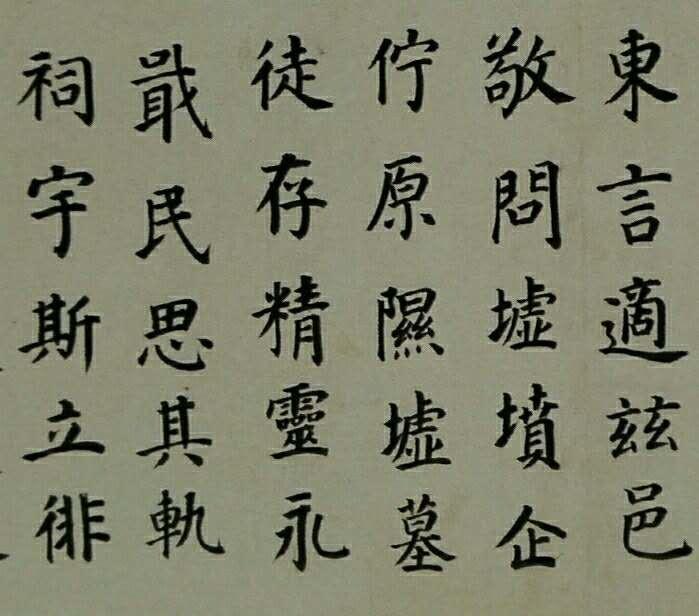 東言適玆邑
敬問墟墳企
佇原隰墟墓
徒存精靈永
戢民思其軌
祠宇斯立徘